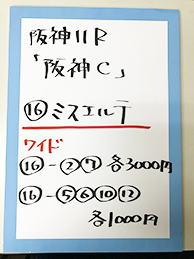 阪神11R
「阪神C」
⑯ミスエルテ
ワイド
⑯-②⑦ 各3000円
⑯-⑤⑥⑩⑫
各1000円